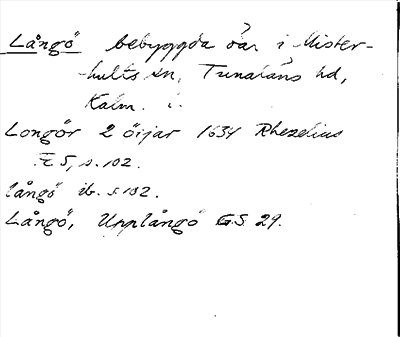 Långö bebyggda öar i Mister-
hults sn, Tunaläns hd,
Kalm. l.
Longör 2 öijar 1634 Rhezelius
F 5, s. 102.
långö ib. s. 102.
Långö, Upplångö GS 29.